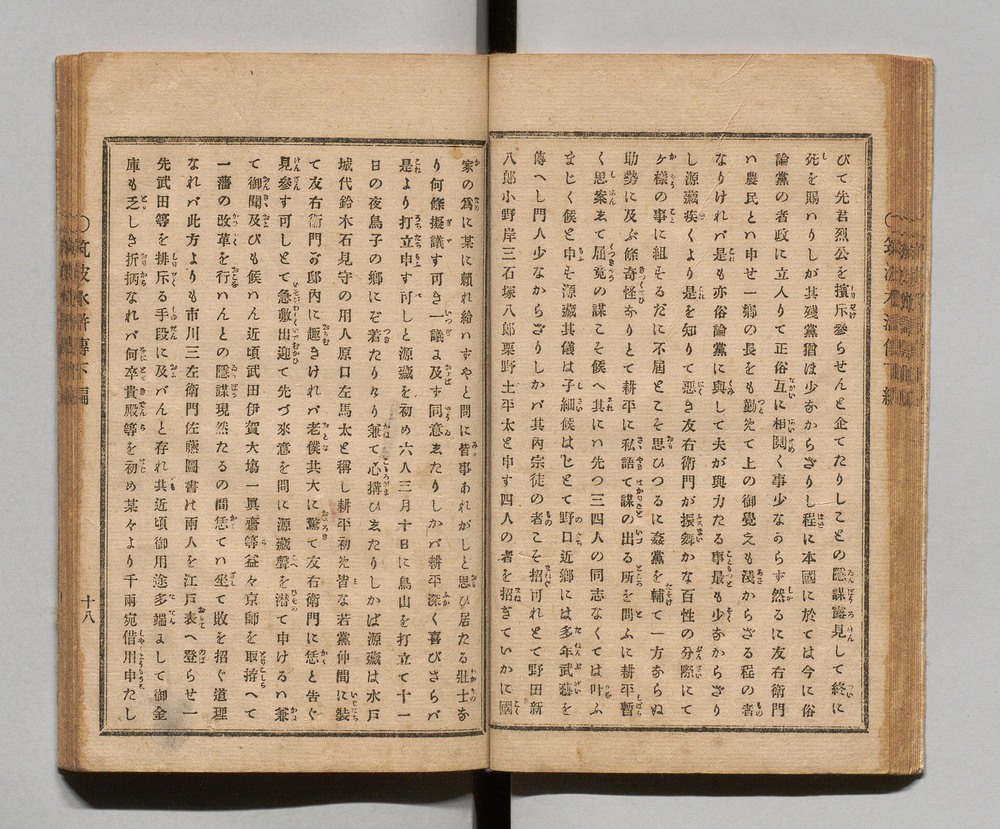 びて先君烈公を擯斥參らせんと企てたりしことの隱謀露見して終に
死を賜ハりしが其殘黨猶ほ少からざりし程に本國に於ては今に俗
論黨の者政に立入りて正俗互に相鬩く事少なからす然るに友右衛門
ハ農民とハ申せ一鄕の長をも勤めて上の御覺えも淺からざる程の者
なりけれバ是も亦俗論黨に與して夫が與力たる事最も少なからざり
し源藏疾くより是を知りて惡き友右衛門が振舞かな百性の分際にて
ケ樣の事に組そるだに不屆とこそ思ひつるに姦黨を輔て一方ならぬ
助勢に及ぶ條奇怪なりとて耕平に私語て謀の出る所を問ふに耕平暫
く思案ゑて屈竟の謀こそ候へ其にハ先つ三四人の同志なくては叶ふ
まじく候と申そ源藏其儀は子細候はじとて野口近鄕には多年武藝を
傳へし門人少なからざりしかバ其內宗徒の者こそ招可れとて野田新
八郎小野岸三石塚八郎栗野土平太と申す四人の者を招ぎていかに國
家の爲に某に賴れ給ハすやと問に皆事あれがしと思ひ居たる壯士な
り何條擬議す可き一議ょ及す同意ゑたりしかバ耕平深く喜びさらバ
是より打立申す可しと源藏を初め六人三月十日に烏山を打立て十一
日の夜鳥子の鄕にぞ着たりなり兼て心搆ひゑたりしかば源藏は水戶
城代鈴木石見守の用人原口左馬太と稱し耕平初め皆な若黨仲間に裝
て友右衛門の邸內に趣きけれバ老僕共大に驚て友右衛門に恁と告ぐ
見參す可しとて急敷出迎て先づ來意を問に源藏聲を潜て申けるハ兼
て御聞及びも候ハん近頃武田伊賀大塲一眞齋等益々京師を取拵へて
一藩の改革を行ハんとの隱謀現然たるの間恁てハ坐て敗を招ぐ道理
なれバ此方よりも市川三左衛門佐藤圖書は兩人を江戶表へ登らせ一
先武田等を排斥る手段に及バんと存れ共近頃御用途多端まして御金
庫も乏しき折柄なれバ何卒貴殿等を初め某々より千兩宛借用申たし
十八
筑波水滸傳下編